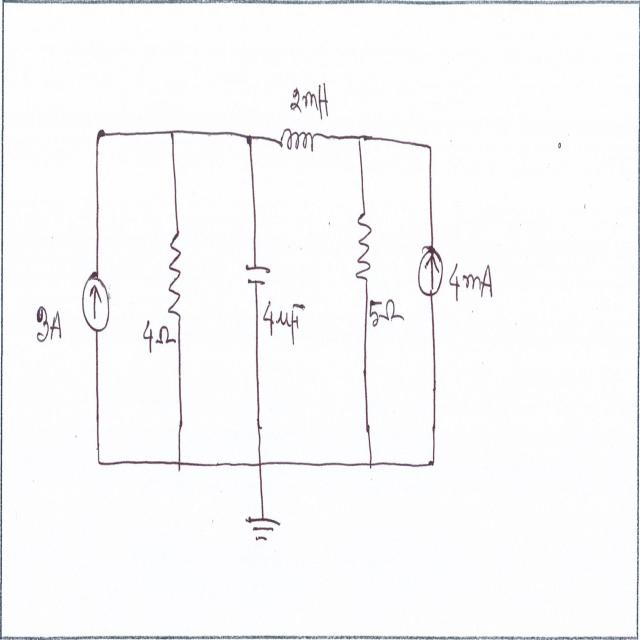 2mH
3A
4Ω
4μF
5Ω
4mA